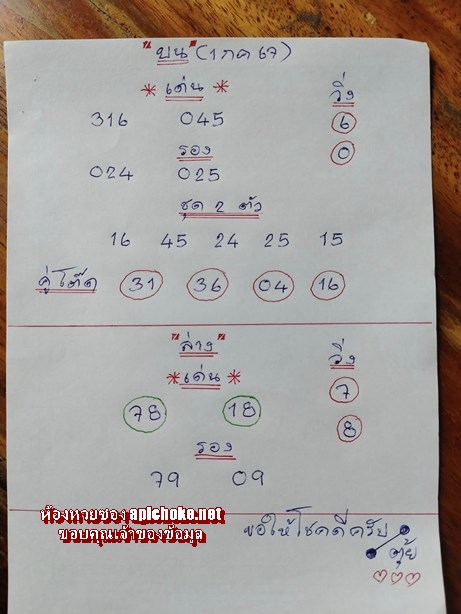 "บน" (1 กค 67)
* เด่น *
วิ่ง
316 045
6
รอง
0
024 025
ชุด 2 ตัว
16 45 24 25 15
คู่โต๊ด 31 36 04 16
"ล่าง"
วิ่ง
* เด่น *
7
78 18
8
รอง
79 09
ห้องหวยซอง apichoke.net
ขอบคุณเจ้าของข้อมูล
ขอให้โชคดีครับ
ตุ้ย
♡♡♡